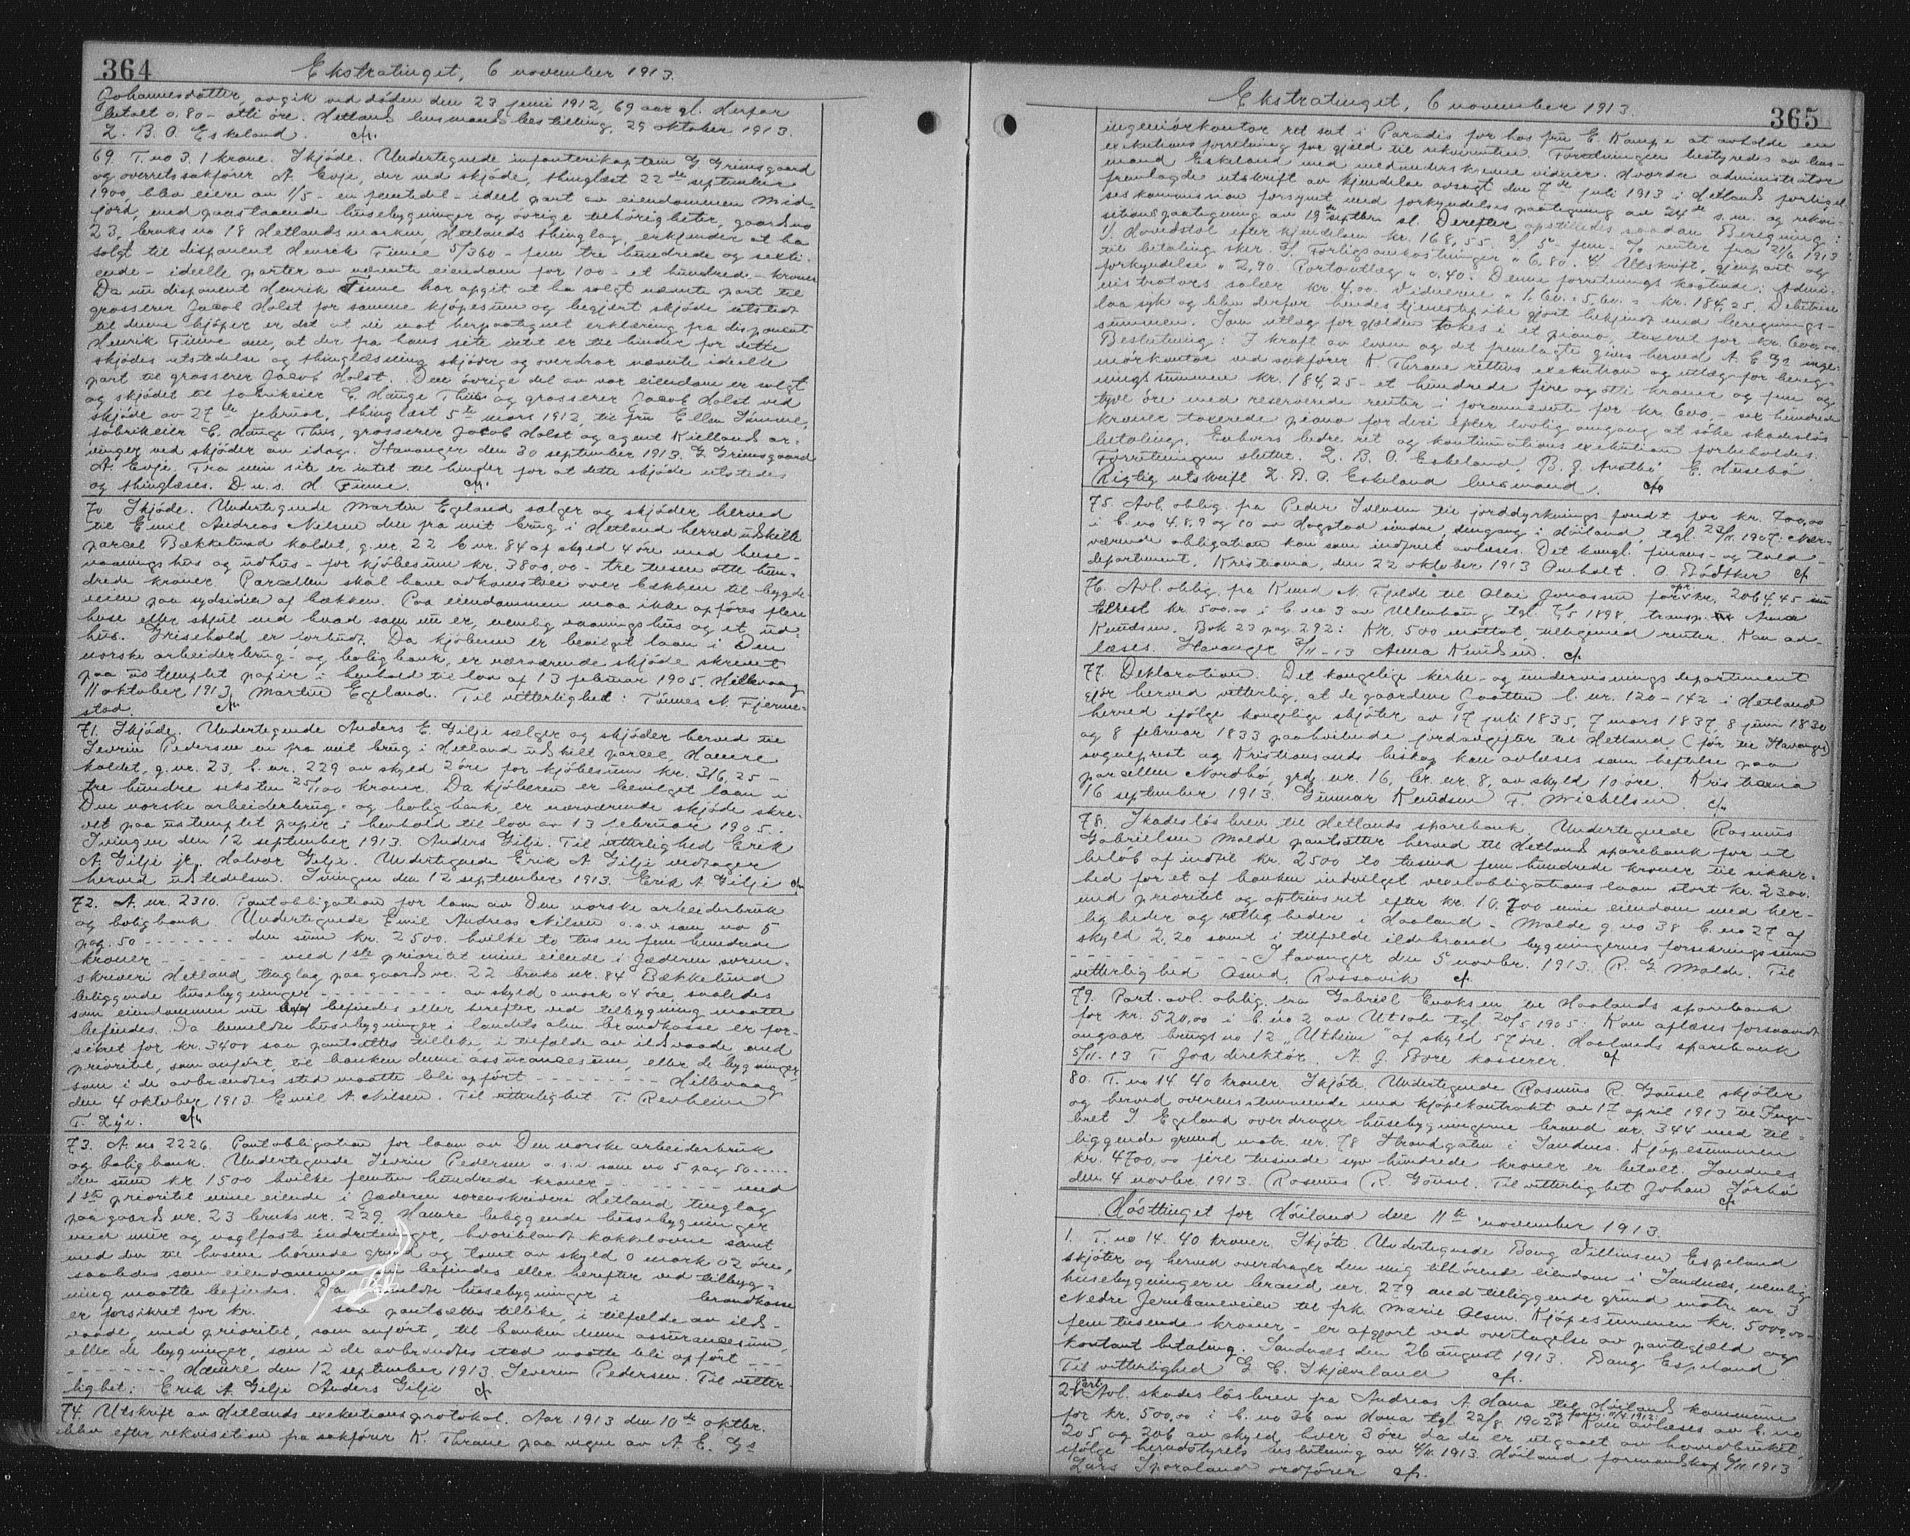 364
Ekstratinget, 6 november 1913.
Johannesdatter, avgik ved døden den 23 juni 1912, 69 aar gl. Herfor
betalt 0.80 - otti øre. Hetland lensmandsbestilling, 29 oktober 1913.
L. B. O. Eskeland.
69. T. no 3. 1 krone. Skjøde. Undertegnede infanterikaptein G Grimsgaard
og overretssakfører A. Evje, der ved skjøde, thinglæst 22de september
1900, blev eiere av 1/5 - en femtedel - ideel part av eiendommen Mid-
jord, med paastaaende husebygninger og øvrige tilhørigheter, gaards no
23, bruks no 18 Hetlandsmarken, Hetlands thinglag, erkjender at ha
solgt til disponent Henrik Finne 5/360 - fem tre hundrede og sexti
ende - ideelle parter av nævnte eiendom for 100 - et hundrede - kroner
Da nu disponent Henrik Finne har opgit at ha solgt nævnte part til
grosserer Jacob Holst for samme kjøpesum og begjært skjøde utstedt
til denne kjøper er det at vi mot herpaategnet erklæring fra disponent
Henrik Finne om, at der fra hans side intet er til hinder for dette
skjødes utstedelse og thinglæsning skjøder og overdrar nævnte ideelle
part til grosserer Jacob Holst. Den øvrige del av vor eiendom er solgt
og skjødet til fabrikeier E. Hauge Thiis og grosserer Jacob Holst ved
skjøde av 27de februar, thinglæst 5te mars 1912, til fru Ellen Tømme,
fabrikeier E. Hauge Thiis, grosserer Jacob Holst og agent Kiellands ar-
vinger ved skjøder av idag. Stavanger den 30 september 1913. G Grimsgaard
A. Evje. Fra min side er intet til hinder for at dette skjøde utstedes
og thinglæses. D. u. s. H Finne.
70 Skjøde. Undertegnede Martin Egeland sælger og skjøder herved
til Emil Andreas Nilsen den fra mit brug i Hetland herred udskilte
parcel Bækkelund kaldet, g. nr. 22 b nr. 84 af skyld 4 øre med huse-
vaanings hus og udhus - for kjøbesum kr. 3800,00 - tre tusen otte hun-
drede kroner. Parcellen skal have adkomstvei over bækken til bygde-
veien paa sydsiden af bækken. Paa eiendommen maa ikke opføres flere
huse eller skjul end hvad som nu er, nemlig vaaningshus og et ud-
hus. Grisehold er forbudt. Da kjøberen er beviget laan i Den
norske arbeiderbrug- og boligbank, er nærværende skjøde skrevet
paa ustemplet papir i henhold til lov af 13 februar 1905. Hillevaag
11 oktober 1913. Martin Egeland. Til vitterlighed: Tønnes N. Fjerme-
stad.
71. Skjøde. Undertegnede Anders E. Gilje sælger og skjøder herved til
Severin Pedersen en fra mit brug i Hetland udskilt parcel, Hamre
kaldet, g. nr. 23, b. nr. 229 av skyld 2 øre for kjøbesum kr. 316,25 -
tre hundre seksten 25/100 kroner. Da kjøberen er bevilget laan i
Den norske arbeiderbrug- og boligbank, er nærværende skjøde skre-
vet paa ustemplet papir i henhold til lov av 13 februar 1905.
den 12 september 1913. Anders Gilje. Til vitterlighed Erik
A. Gilje jr. Halvor Gilje. Undertegnede Erik A Gilje vedtager
herved udstedelsen. den 12 september 1913. Erik A Gilje
72. A. nr. 2310. Pantobligation for laan av Den norske arbeiderbruk
og boligbank. Undertegnede Emil Andreas Nilsen o. s. v som no 5
pag. 50 - - - - - - - den sum kr. 2500. hvilke to tusen fem hundrede
kroner - - - - - - - med 1ste prioritet mine eiende i Jæderen soren-
skriveri Hetland tinglag paa gaards nr. 22 bruks nr. 84 Bækkelund
beliggende husebygninger - - - - - - - - - av skyld 0 mark 04 øre, saaledes
som eiendommen nu befindes eller herefter ved tilbygning maatte
befindes. Da bemeldte husebygninger i landets alm brandkasse er for-
sikret for kr. 3400 saa pantsættes tillike, i tilfælde av ildsvaade, med
prioritet, som anført, til banken denne assurancesum, eller de bygninger,
som i de avbrændtes sted maatte bli opført - - - - - - - - Hillevaag
den 4 oktober 1913. Emil A. Nilsen. Til vitterlighet T. Revheim
T. Lye.
73. A. no 2226. Pantobligation for laan av Den norske arbeiderbruk
og boligbank. Undertegnede Severin Pedersen o. s. v. som no 5 pag 50 . . . . .
den sum kr 1500 hvilke femten hundrede kroner - - - - - - - - med
1ste prioritet mine eiende i Jæderen sorenskriveri Hetland tinglag
paa gaards nr. 23 bruks nr. 229 Hamre beliggende husebygninger
med mur og naglfaste indretninger, hvoriblandt kakkelovne samt
med den til husene hørende grund og tomt av skyld 0 mark 02 øre,
saaledes som eiendommen nu befindes eller herefter ved tilbyg-
ning maatte befindes. Da bemeldte husebygninger i brandkasse
er forsikret for kr. saa pantsættes tillike, i tilfælde av ilds-
vaade, med prioritet, som anført, til banken denne assurancesum,
eller de bygninger, som i de avbrændtes sted maatte bli opført - - -
- - - - - - - Hamre den 12 september 1913. Severin Pedersen. Til vitter-
lighet: Erik A Gilje Anders Gilje
74. Utskrift av Hetlands exekutionsprotokol. Aar 1913 den 10de oktbr.
blev efter rekvisition fra sakfører K. Thrane paa vegne av A. E. Gs
Ekstratinget, 6 november 1913.
365
ingeniørkontor ret sat i Paradis for hos fru E. Kampe at avholde en
exekutionsforretning for gjæld til rekvirenten. Forretningen bestyredes av lens-
mand Eskeland med medunderskrevne vidner. Hvorda administrator
fremlagde utskrift av kjendelse avsagt den 7de juli 1913 i Hetland forligel-
seskommission forsynt med forkyndelsespaategning av 24de s. m. og rekvi-
sitionspaategning av 19de septbr sl. Derefter opstilledes saadan Beregning:
1/ Hovedstol efter kjendelsen kr. 168,55. 2/ 5 - fem - % renter fra 21/6 1913
til betaling sker. 3/ Forligsomkostninger " 6.80. 4/ Utskrift, gjenpart og
forkyndelse " 2,90. Portoutlæg " 0.40. Denne forretnings kostende: Admi-
nistrators salær kr. 4,00. Vidnerne " 1,60. = 5,60. = kr. 184,25. Debitricen
laa syk og blev derfor hendes tjenestepike gjort bekjendt med beregnings-
summen. Som utlæg for gjælden tokes i et piano, taxeret for kr. 600,00.
Beslutning: I kraft av loven og det fremlagte gives herved A. E. Gs inge-
niørkontor ved sakfører K Thrane rettens exekution og utlæg for bereg-
ningssummen kr. 184,25 - et hundrede fire og otti kroner og fem og
tyve øre med reserverede renter i foranævnte for kr. 600,- sex hundrede
kroner taxerede piano for deri efter lovlig omgang at søke skadesløs
betaling. Enhvers bedre ret og kontinuations exekution forbeholdes.
Forretningen sluttet. L. B. O. Eskeland. B. J. Austbø E. Husebø
Rigtig utskrift L B. O. Eskeland lensmand.
75. Avl. oblig fra Peder Iversen til jorddyrkningsfondet for kr. 700,00
i b. no 4, 8, 9 og 10 av Hogstad søndre, dengang i Høiland, tgl. 23/11 1907. Nær-
værende obligation kan som indfriet avlæses. Det kongl. finans- og told-
departement, Kristiania, den 22 oktober 1913 Omholt. O Bødtker
76. Avl. oblig. fra Knud N. Tjelde til Olai Jonassen for opr. kr. 2064,45 nu
tilrest kr. 500.00 i b. no 3 av Ullenhaug tgl. 7/5 1898, transp. Anna
Knudsen. Bok 23 pag. 292: Kr. 500 mottat tillikemed renter. Kan av-
læses. Stavanger 3/11-13 Anna Knudsen.
77. Deklaration. Det kongelige kirke- og undervisningsdepartement
gjør herved vitterlig, at de gaardene Jaatten l. nr. 120-142 i Hetland
herred ifølge kongelige skjøter av 17 juli 1835, 7 mars 1837, 8 juni 1830
og 8 februar 1833 paahvilende jordavgifter til Hetland (før til Stavanger)
sogneprest og Kristiansands biskop kan avlæses som heftelse paa
parcellen Nordbø, grd. nr. 16, br. nr. 8, av skyld 10 øre. Kristiania
16 september 1913. Gunnar Knudsen F. Michelsen.
78. Skadesløsbrev til Hetlands sparebank. Undertegnede Rasmus
Gabrielsen Malde pantsætter herved til Hetlands sparebank for et
beløb af indtil kr. 2500 to tusind fem hundrede kroner til sikker-
hed for et af banken indvilget vexelobligationslaan stort kr. 2300.
med prioritet og optrinsret efter kr. 10.700 mine eiendom med her-
ligheder og rettigheder i Haaland - Malde g. no 38 b. no 27 af
skyld 2,20 samt i tilfælde ildebrand bygningernes forsikringssum
- - - - - - - - - - - - Stavanger den 5 novbr. 1913. R. G Malde. Til
vitterlighed Asmd. Rossavik
79. Part. avl. oblig. fra Gabriel Enoksen til Haalands sparebank
for kr. 520,00 i b. no 2 av Utsole tgl. 20/5 1905: Kan aflæses forsaavidt
angaar brugs no 12 „Utheim" af skyld 57 øre. Haalands sparebank
5/11-13 T Joa direktør. A. J. Bore kasserer.
80. T. no 14. 40 kroner. Skjøte. Undertegnede Rasmus R. Gausel skjøter
og herved overensstemmende med kjøpekontrakt av 17 april 1913 til Inge-
bret I Egeland overdrager husebygningerne brand nr. 344 med til-
liggende grund matr. nr. 78 Strandgaten i Sandnes. Kjøpesummen
kr. 4700,00 fire tusinde syv hundrede kroner er betalt. Sandnes
den 4 novbr 1913. Rasmus R. Gausel. Til vitterlighet Johan Sørbø
Høsttinget for Høiland den 11te november 1913.
1. T. no 14. 40 kroner. Skjøte. Undertegnede Bang Espeland
skjøter og herved overdrager den mig tilhørende eiendom i Sandnæs, nemlig
husebygningerne brand nr. 279 med tilliggende grund matr. nr. 3
Nedre Jernbaneveien til frk Marie Olsen. Kjøpesummen kr. 5000,00 -
fem tusende kroner - er afgjort ved overtagelse av pantegjæld og
kontant betaling. Sandnes den 26 august 1913. Bang Espeland
Til vitterlighed G. E. Skjæveland
2. Part. Avl. skadesløsbrev fra Andreas A Hana til Høilands kommune
for kr. 500,00 i b. no 36 av Hana tgl. 22/8 1902: Kan avlæses av b. no
205 og 206 av skyld hver 3 øre da de er utgaaet av hovedbruket
ifølge herredstyrets beslutning av 4/11. 1913. Høiland formandskap 8/11 1913
Lars Sporaland ordfører